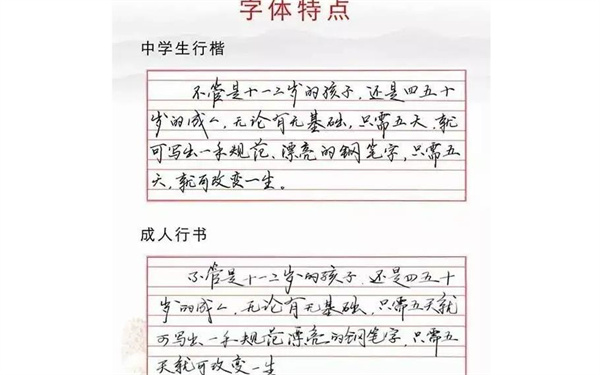 字体特点
中学生行楷
不管是十一二岁的孩子,还是四五十
岁的成人,无论有无基础,只需五天,就
可写出一手规范、漂亮的钢笔字,只需五
天,就可改变一生。
成人行书
不管是十一二岁的孩子,还是四五十
岁的成人,无论有无基础,只需五天就
可写出一手规范漂亮的钢笔字,只需五
天就可改变一生